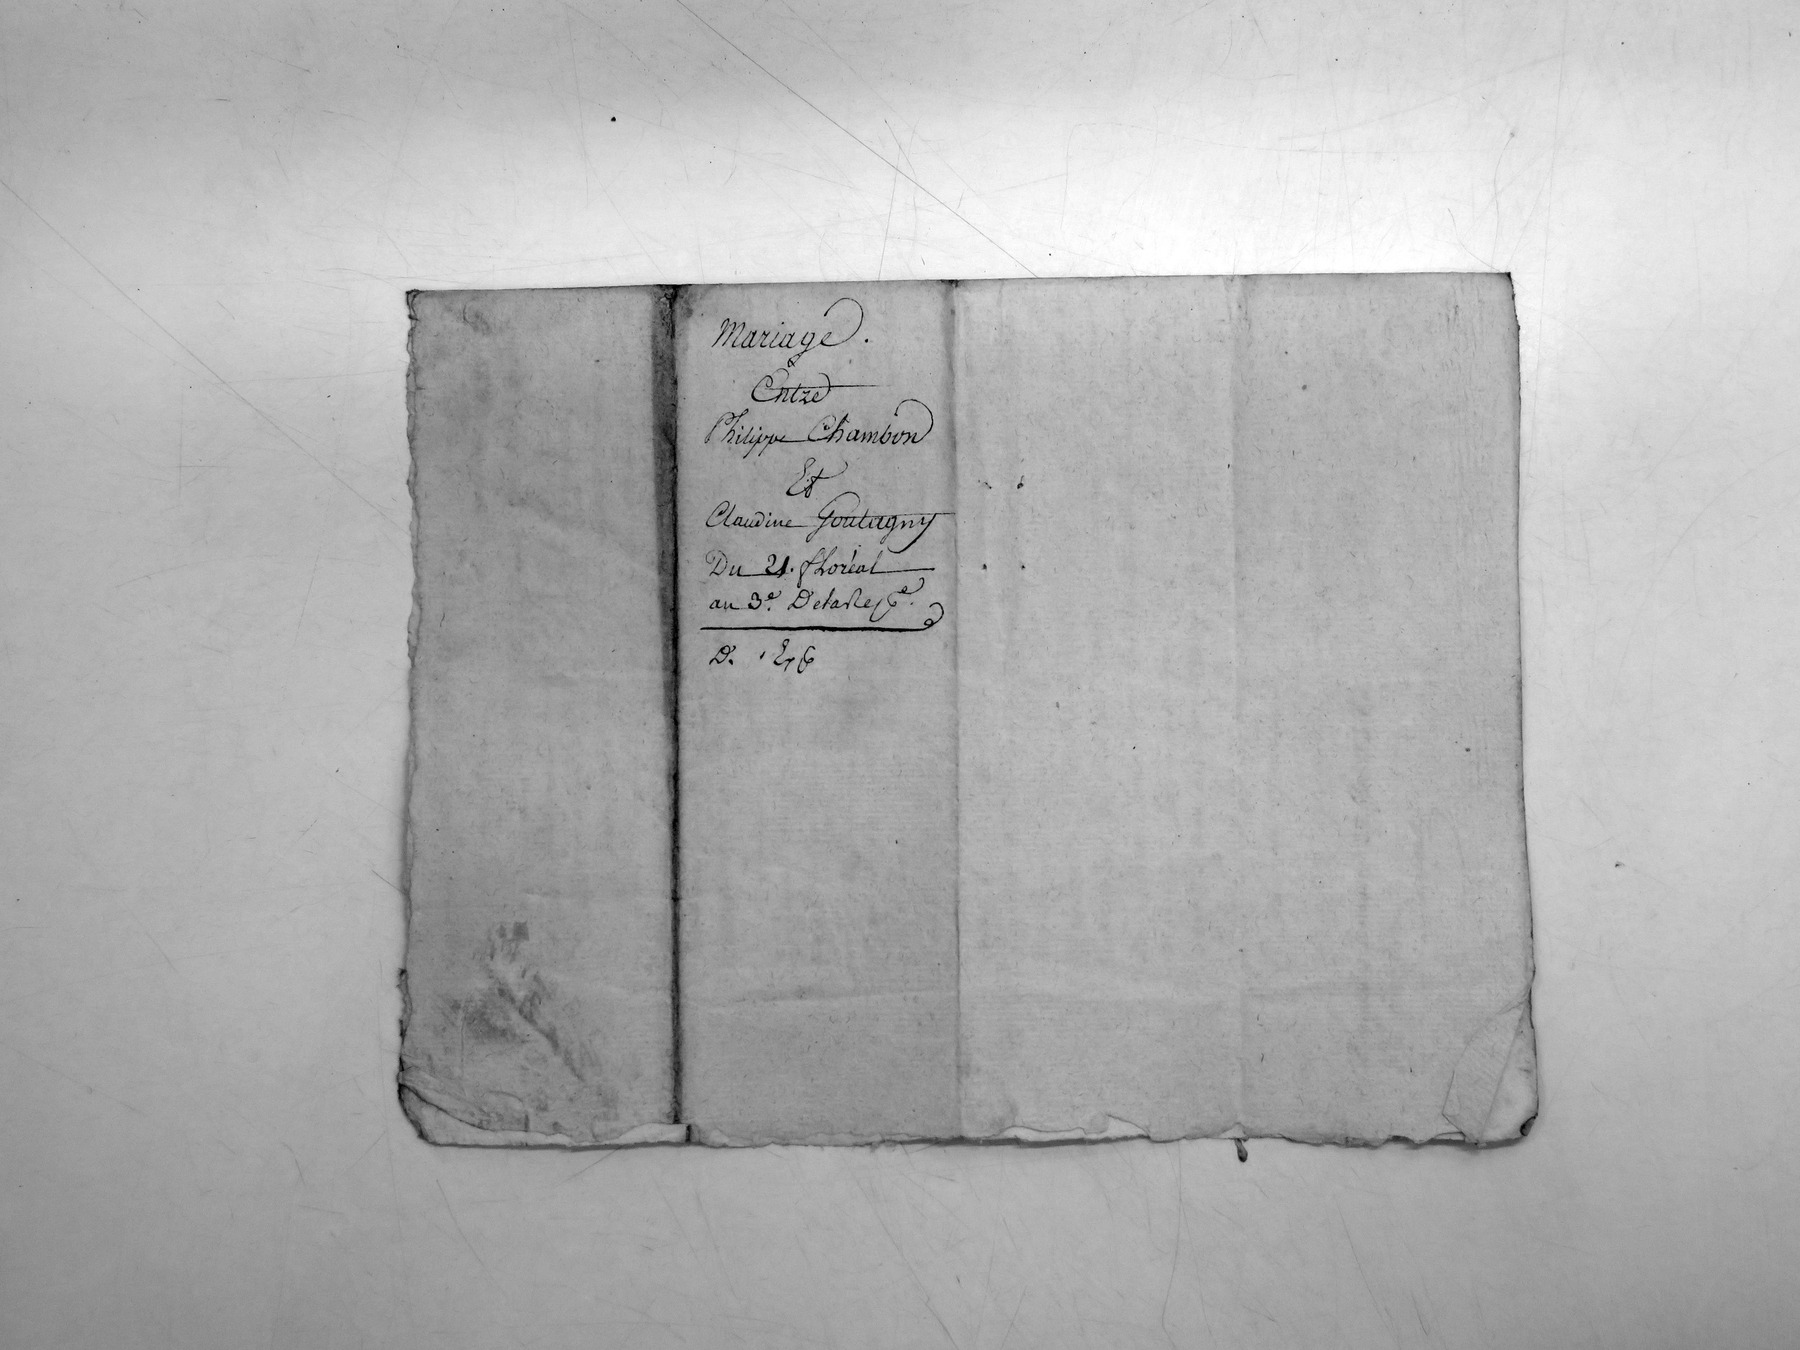 Mariage.
Entre
Philippe Chambon
Et
Claudine Goutagny
Du 21. floréal
an 3e. De la Rep̃e.
D. Exp